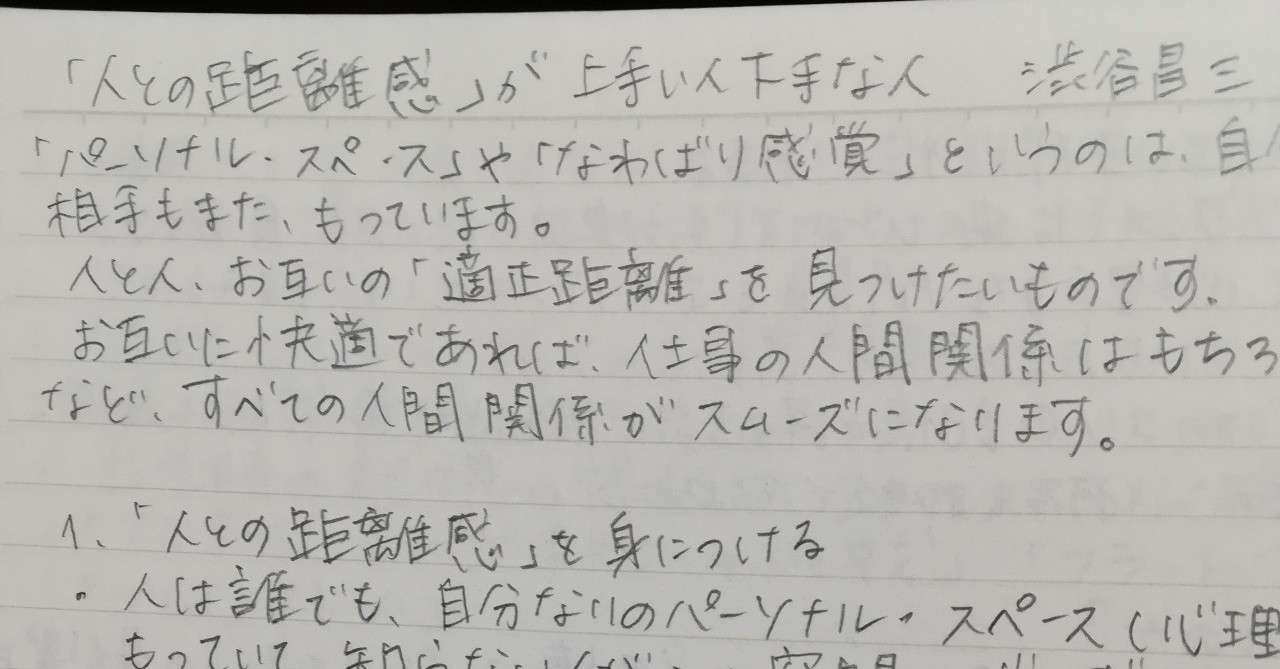 「人との距離感」が上手い人下手な人　渋谷昌三
「パーソナル・スペース」や「なわばり感覚」というのは、自
相手もまた、もっています。
人と人、お互いの「適正距離」を見つけたいものです。
お互いに快適であれば、仕事の人間関係はもちろ
など、すべての人間関係がスムーズになります。
1、「人との距離感」を身につける
・人は誰でも、自分なりのパーソナル・スペース(心理
もっていて